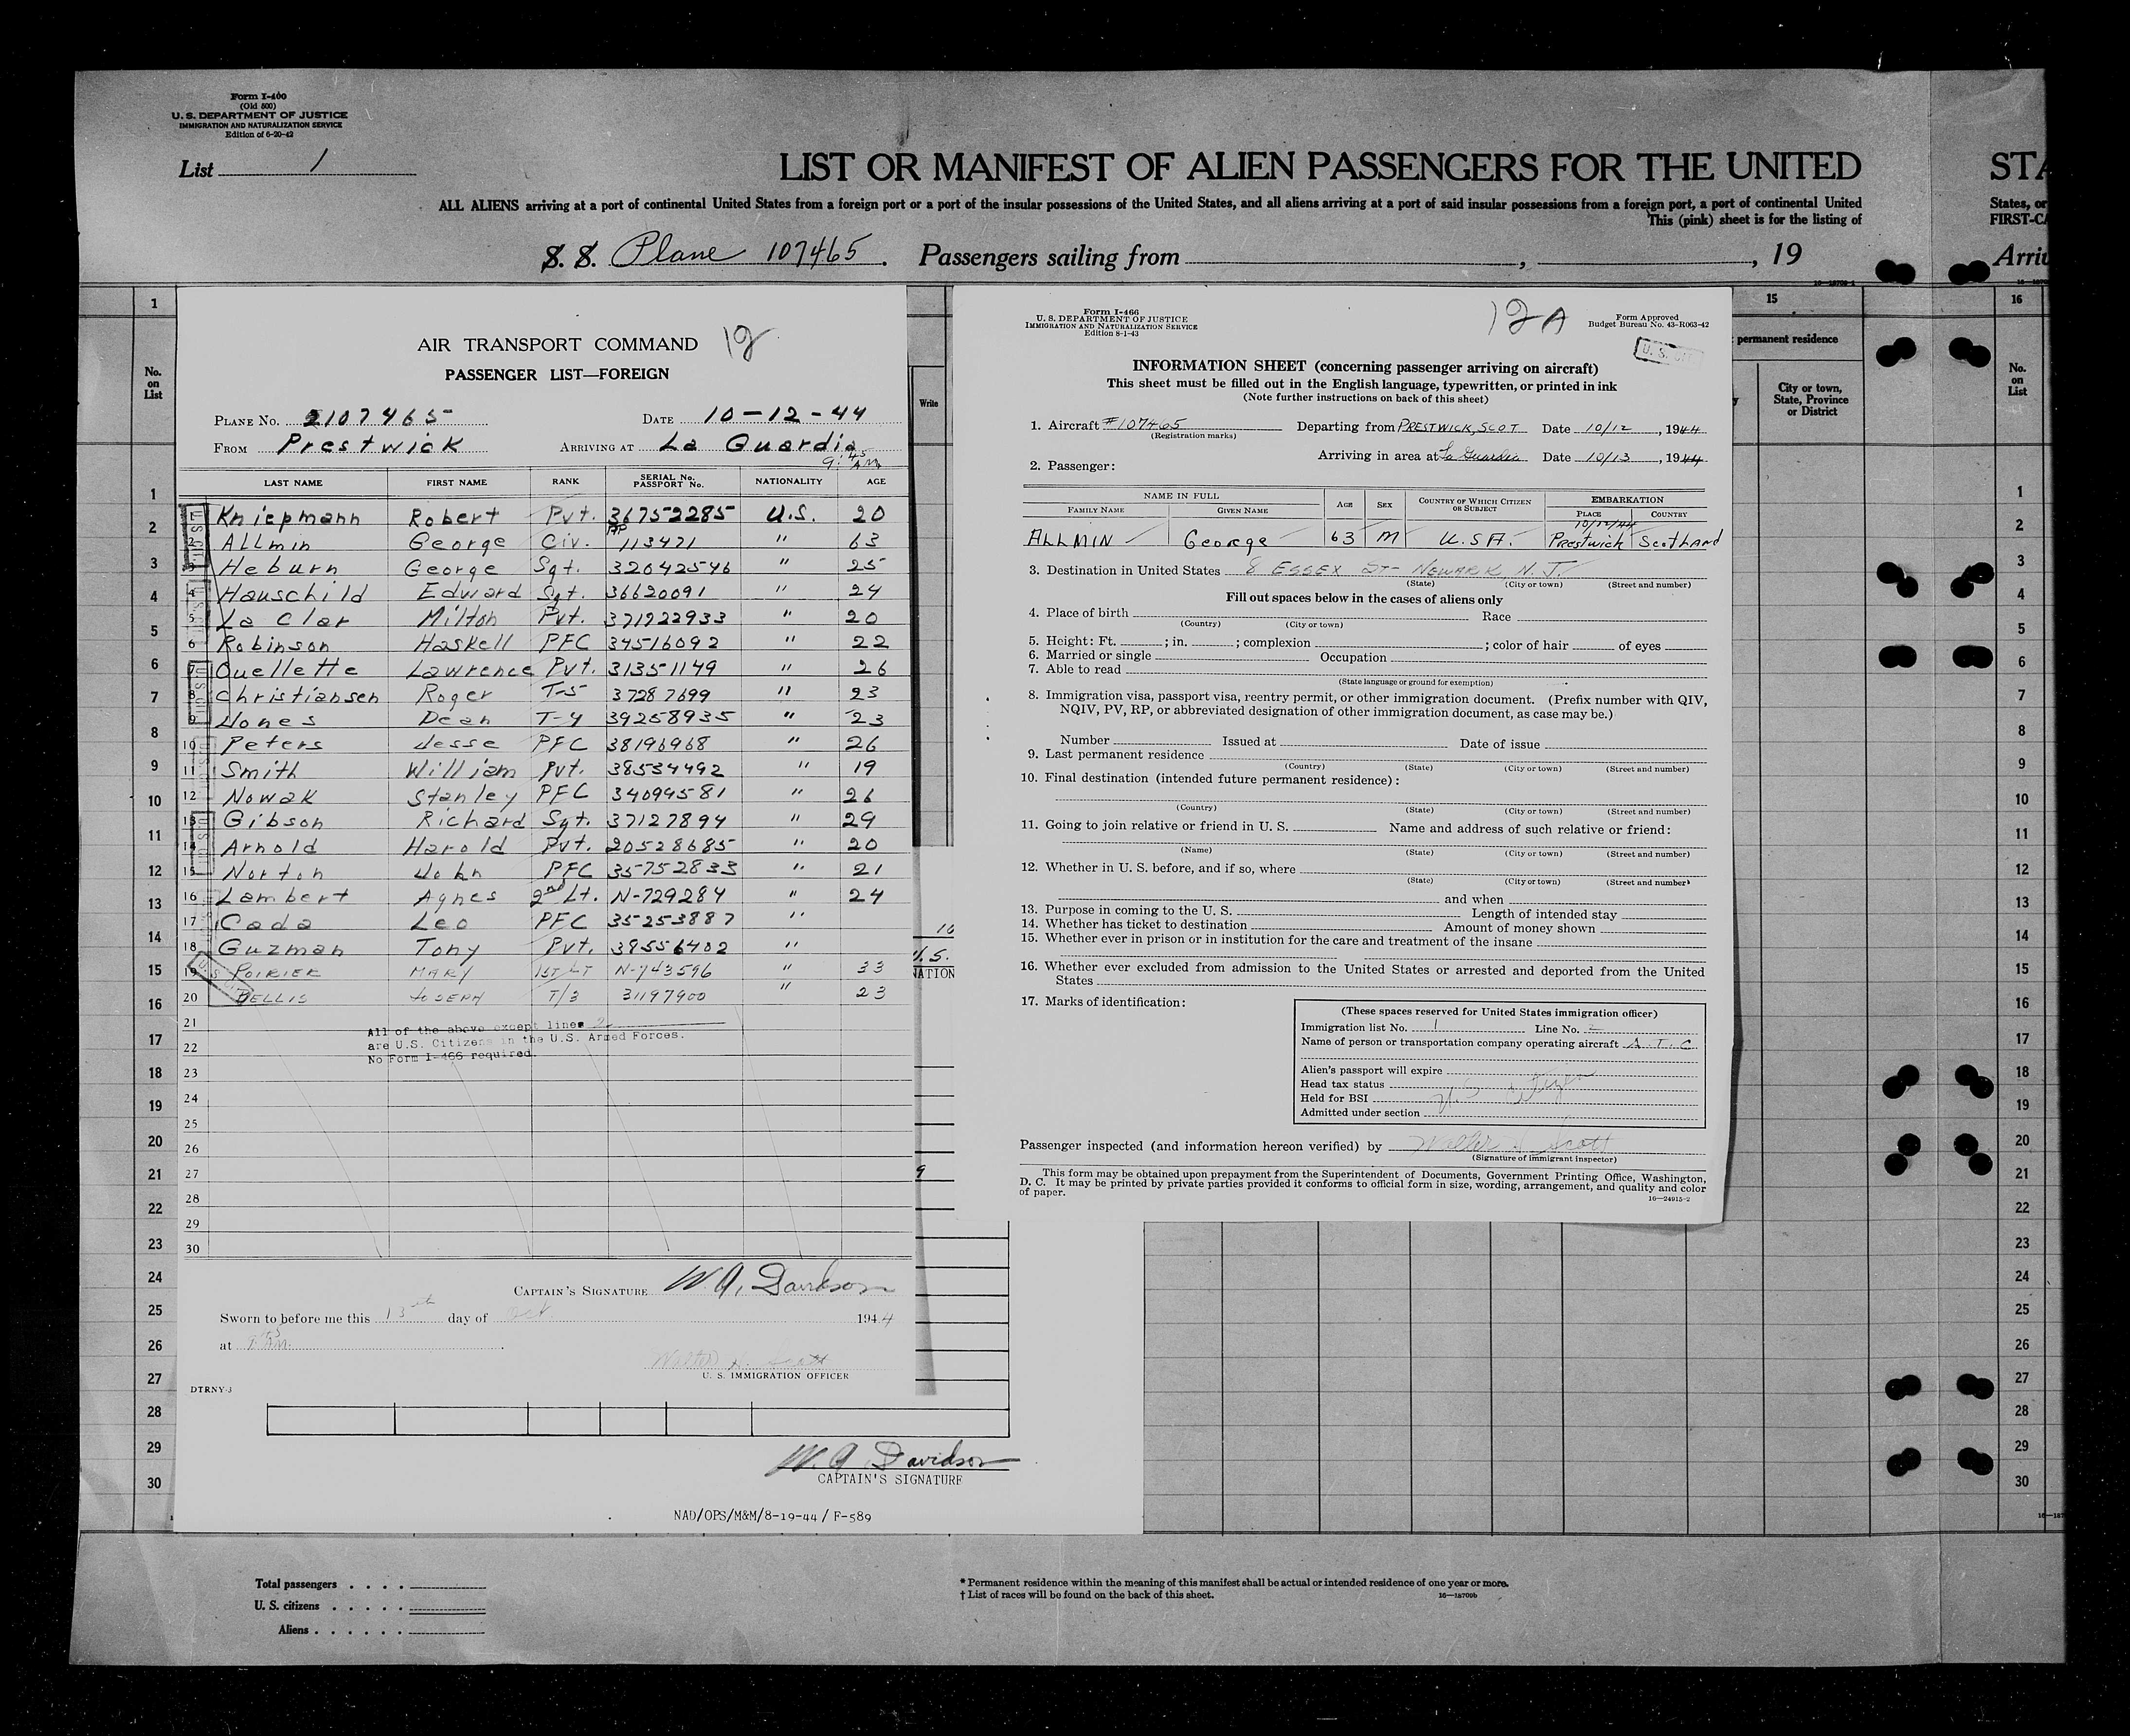 Form I-400
(Old 500)
U. S. DEPARTMENT OF JUSTICE
IMMIGRATION AND NATURALIZATION SERVICE
Edition of 6-20-42
List 1
LIST OR MANIFEST OF ALIEN PASSENGERS FOR THE UNITED
STA
ALL ALIENS arriving at a port of continental United States from a foreign port or a port of the insular possessions of the United States, and all aliens arriving at a port of said insular possessions from a foreign port, a port of continental United
States, or
This (pink) sheet is for the listing of
FIRST-CA
S. S. Plane 107465. Passengers sailing from , , 19
Arriv
AIR TRANSPORT COMMAND 12
PASSENGER LIST—FOREIGN
PLANE No. 2107465 DATE 10-12-44
FROM Prestwick ARRIVING AT La Guardia
9:45 AM
LAST NAME FIRST NAME RANK SERIAL No. PASSPORT No. NATIONALITY AGE
1 Kniepmann Robert Pvt. 36752285 U.S. 20
2 Allmin George Civ. PP 113471 " 63
3 Heburn George Sgt. 32042546 " 25
4 Hauschild Edward Sgt. 36620091 " 24
5 La Clar Milton Pvt. 371922933 " 20
6 Robinson Haskell PFC 34516092 " 22
7 Ouellette Lawrence Pvt. 31351149 " 26
8 Christiansen Roger T-5 37287699 " 23
9 Jones Dean T-4 39258935 " 23
10 Peters Jesse PFC 38196968 " 26
11 Smith William Pvt. 38534492 " 19
12 Nowak Stanley PFC 34099581 " 26
13 Gibson Richard Sgt. 37127894 " 29
14 Arnold Harold Pvt. 20528685 " 20
15 Norton John PFC 35752833 " 21
16 Lambert Agnes 2nd Lt. N-729284 " 24
17 Cada Leo PFC 35253887 "
18 Guzman Tony Pvt. 38556402 "
19 POIRIER MARY 1ST LT N-743596 " 33
20 BELLIS JOSEPH T/3 31197900 " 23
21
22
23
24
25
26
27
28
29
30
All of the above except lines 2
are U.S. Citizens in the U.S. Armed Forces.
No Form I-466 required.
CAPTAIN'S SIGNATURE W. A. Davidson
Sworn to before me this 13th day of Oct 1944
at
Walter H. Scott
U. S. IMMIGRATION OFFICER
DTRNY-3
W. A. Davidson
CAPTAIN'S SIGNATURE
NAD/OPS/M&M/8-19-44 / F-589
Form I-466
U. S. DEPARTMENT OF JUSTICE
IMMIGRATION AND NATURALIZATION SERVICE
Edition 8-1-43
12 A
Form Approved
Budget Bureau No. 43-R063-42
INFORMATION SHEET (concerning passenger arriving on aircraft)
This sheet must be filled out in the English language, typewritten, or printed in ink
(Note further instructions on back of this sheet)
1. Aircraft #107465 Departing from PRESTWICK, SCOT Date 10/12, 1944
(Registration marks)
Arriving in area at La Guardia Date 10/13, 1944
2. Passenger:
NAME IN FULL AGE SEX COUNTRY OF WHICH CITIZEN OR SUBJECT EMBARKATION
FAMILY NAME GIVEN NAME PLACE COUNTRY
10/12/44
ALLMIN George 63 M U.S.A. Prestwick Scotland
3. Destination in United States 8 ESSEX ST- NEWARK, N.J.
(State) (City or town) (Street and number)
Fill out spaces below in the cases of aliens only
4. Place of birth Race
(Country) (City or town)
5. Height: Ft. ; in. ; complexion ; color of hair of eyes
6. Married or single Occupation
7. Able to read
(State language or ground for exemption)
8. Immigration visa, passport visa, reentry permit, or other immigration document. (Prefix number with QIV,
NQIV, PV, RP, or abbreviated designation of other immigration document, as case may be.)
Number Issued at Date of issue
9. Last permanent residence
(Country) (State) (City or town) (Street and number)
10. Final destination (intended future permanent residence):
(Country) (State) (City or town) (Street and number)
11. Going to join relative or friend in U. S. Name and address of such relative or friend:
(Name) (State) (City or town) (Street and number)
12. Whether in U. S. before, and if so, where
(State) (City or town) (Street and number)
and when
13. Purpose in coming to the U. S. Length of intended stay
14. Whether has ticket to destination Amount of money shown
15. Whether ever in prison or in institution for the care and treatment of the insane
16. Whether ever excluded from admission to the United States or arrested and deported from the United
States
17. Marks of identification:
(These spaces reserved for United States immigration officer)
Immigration list No. 1 Line No. 2
Name of person or transportation company operating aircraft A. T. C
Alien's passport will expire
Head tax status
Held for BSI U.S. Citizen
Admitted under section
Passenger inspected (and information hereon verified) by Walter H. Scott
(Signature of immigrant inspector)
This form may be obtained upon prepayment from the Superintendent of Documents, Government Printing Office, Washington,
D. C. It may be printed by private parties provided it conforms to official form in size, wording, arrangement, and quality and color
of paper.
16—24915-2
1
No. on List
1
2
3
4
5
6
7
8
9
10
11
12
13
14
15
16
17
18
19
20
21
22
23
24
25
26
27
28
29
30
Write
10
U.S.
NATION
9
15
permanent residence
City or town, State, Province or District
16
No. on List
1
2
3
4
5
6
7
8
9
10
11
12
13
14
15
16
17
18
19
20
21
22
23
24
25
26
27
28
29
30
Total passengers
U. S. citizens
Aliens
* Permanent residence within the meaning of this manifest shall be actual or intended residence of one year or more.
† List of races will be found on the back of this sheet.
16—18709b